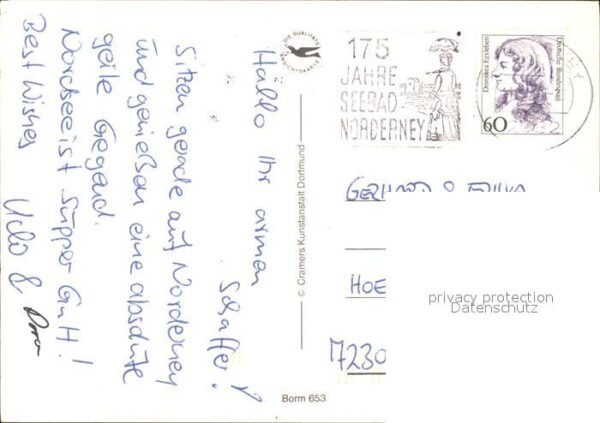 Hallo Ihr armen
Schaffer!
Sitzen gerade auf Norderney
und genießen eine absolute
geile Gegend.
Nordsee ist Supper Gut!
Best Wishes
Udo &
DIE QUALITÄTS
ANSICHTSKARTE
© Cramers Kunstanstalt Dortmund
Borm 653
175
JAHRE
SEEBAD
NORDERNEY
Dorothea Erxleben
Deutsche Bundespost
60
GERHARD
HOE
7230
privacy protection
Datenschutz